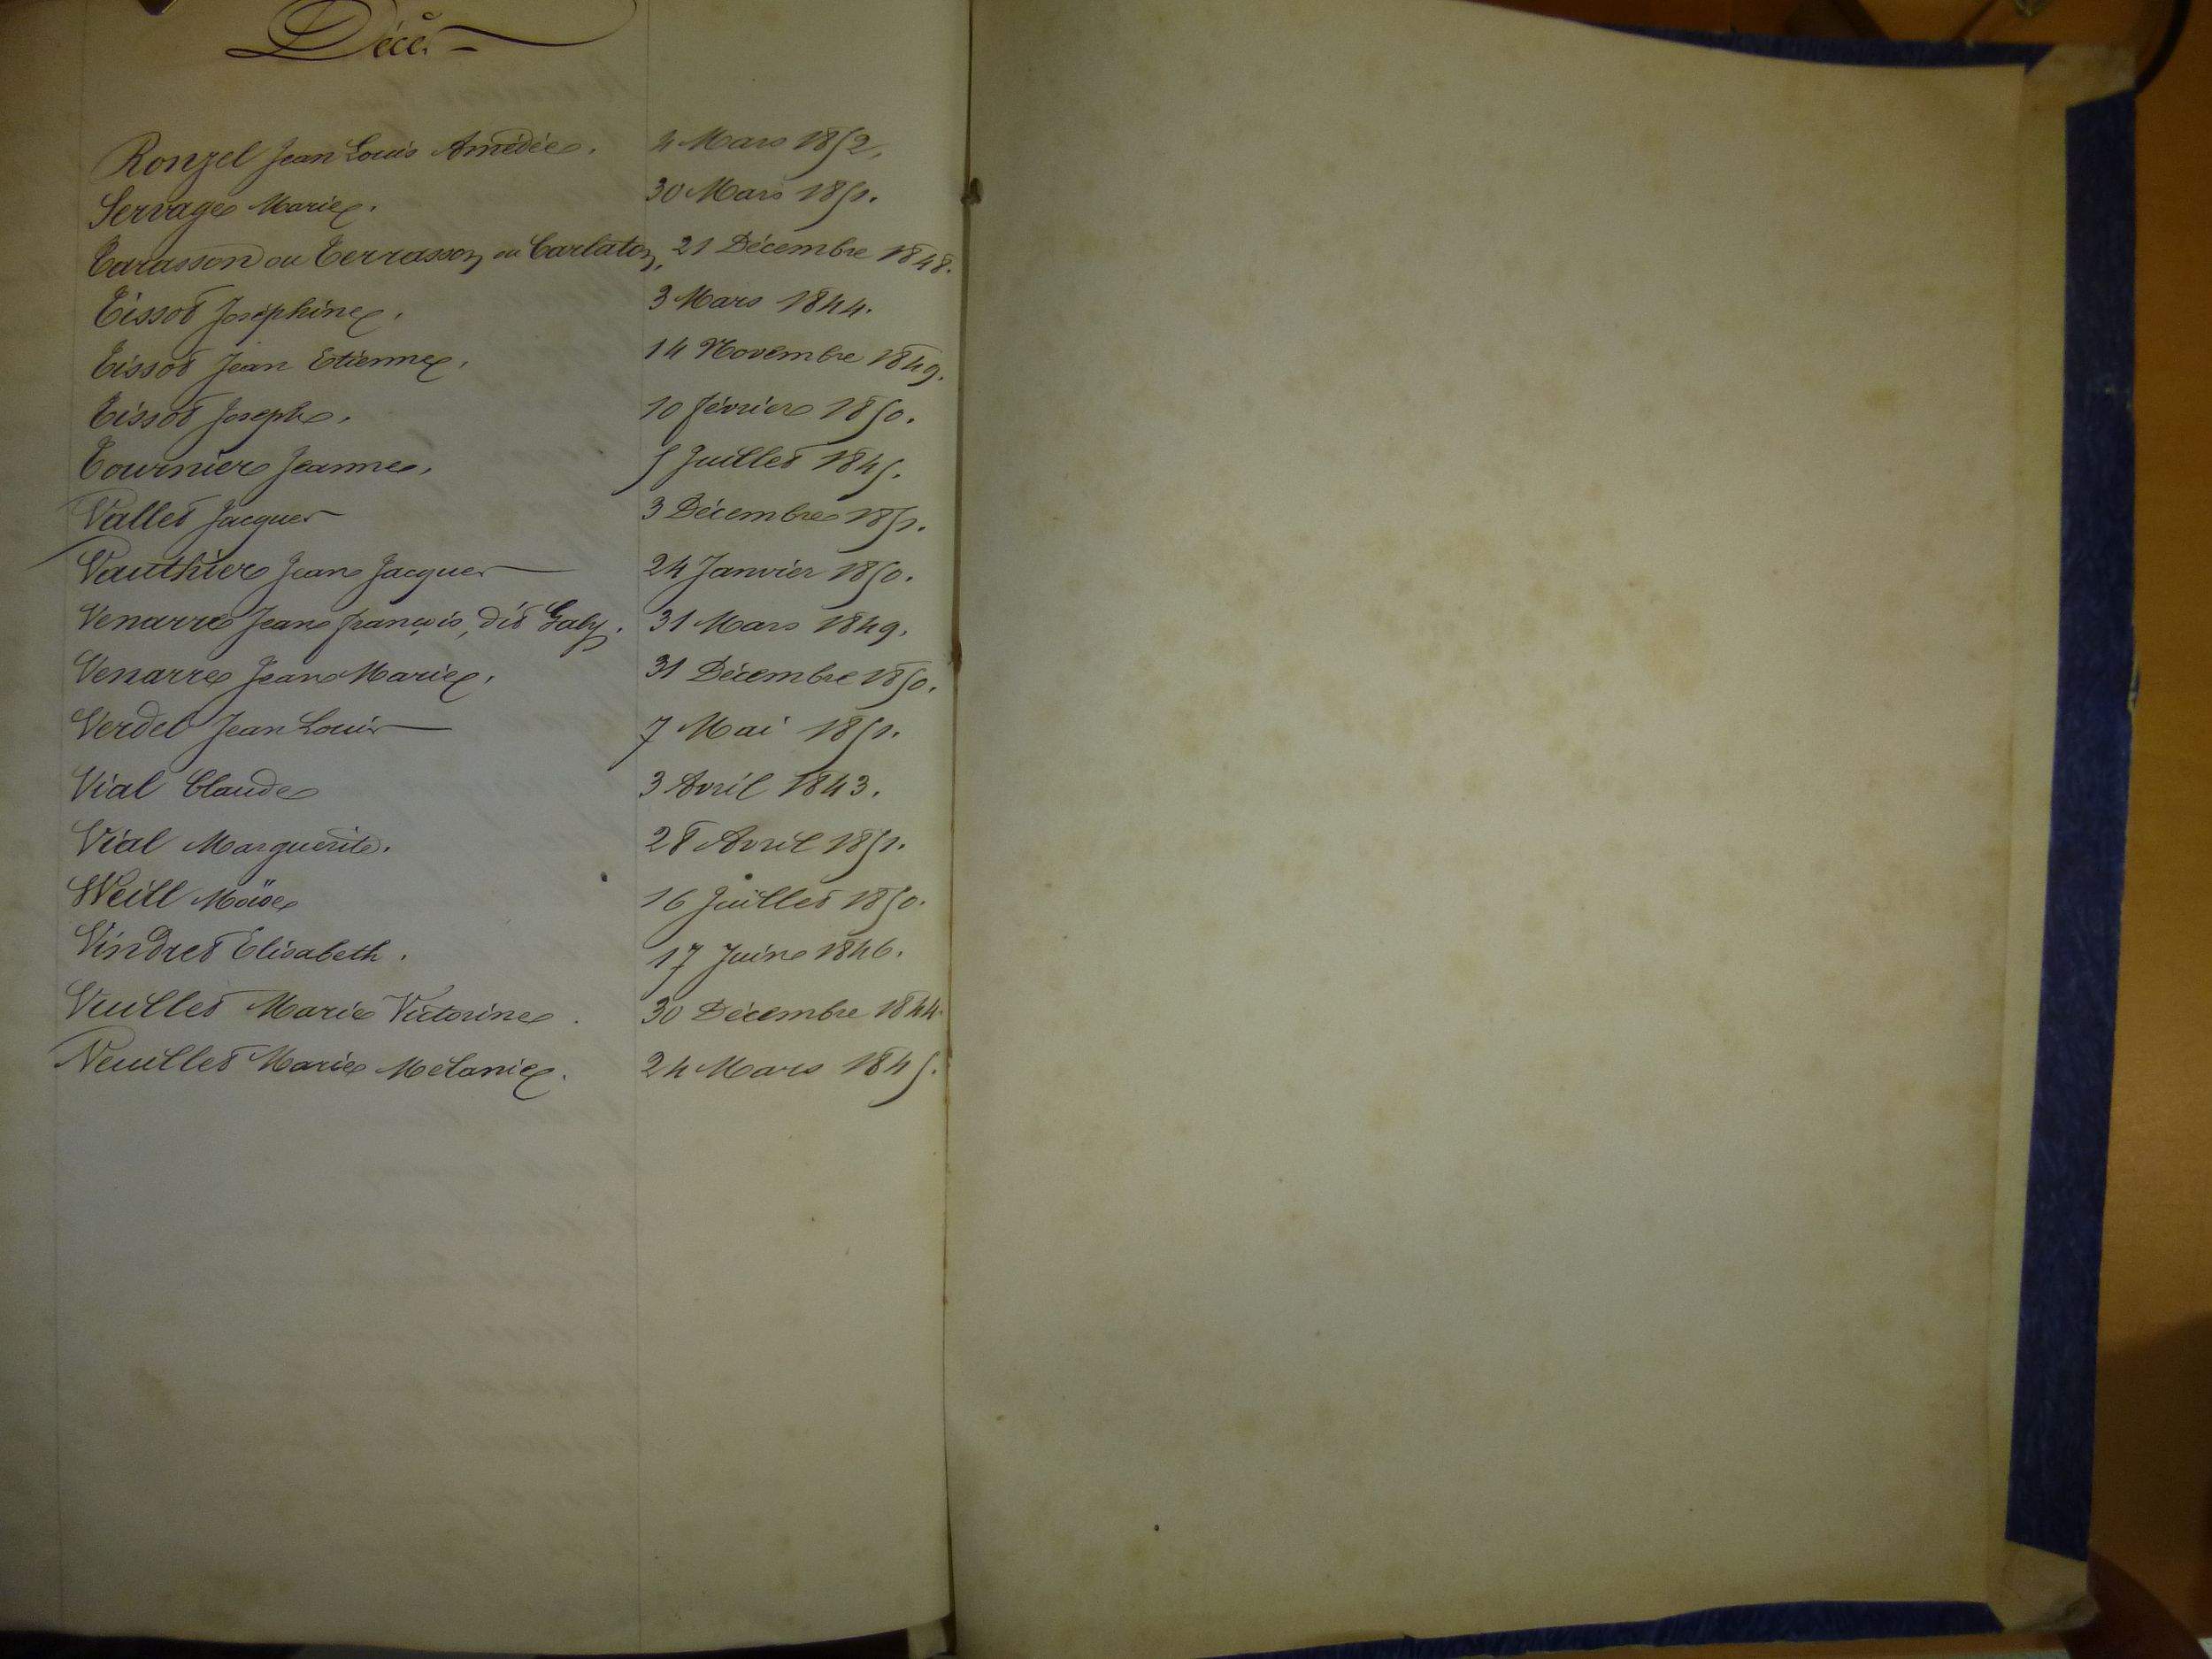 Décès
Ronzel Jean Louis Amédée. 4 Mars 1852.
Servage Marie. 30 Mars 1851.
Tarasson ou Terrasson ou Tarlaton, 21 Décembre 1848.
Tissot Joséphine. 3 Mars 1844.
Tissot Jean Etienne. 14 Novembre 1849.
Tissot Joseph. 10 février 1850.
Tournier Jeanne. 5 Juillet 1845.
Vallet Jacques 3 Décembre 1851.
Vauthier Jean Jacques 24 Janvier 1850.
Venarre Jean françois, dit Gaby. 31 Mars 1849.
Venarre Jean Marie. 31 Décembre 1850.
Verdel Jean Louis 7 Mai 1851.
Vial Claude 3 Avril 1843.
Vial Marguerite. 28 Avril 1851.
Weill Moïse 16 Juillet 1850.
Vindret Elisabeth. 17 Juin 1846.
Vuillet Marie Victorine. 30 Décembre 1844.
Veuillet Marie Mélanie. 24 Mars 1845.